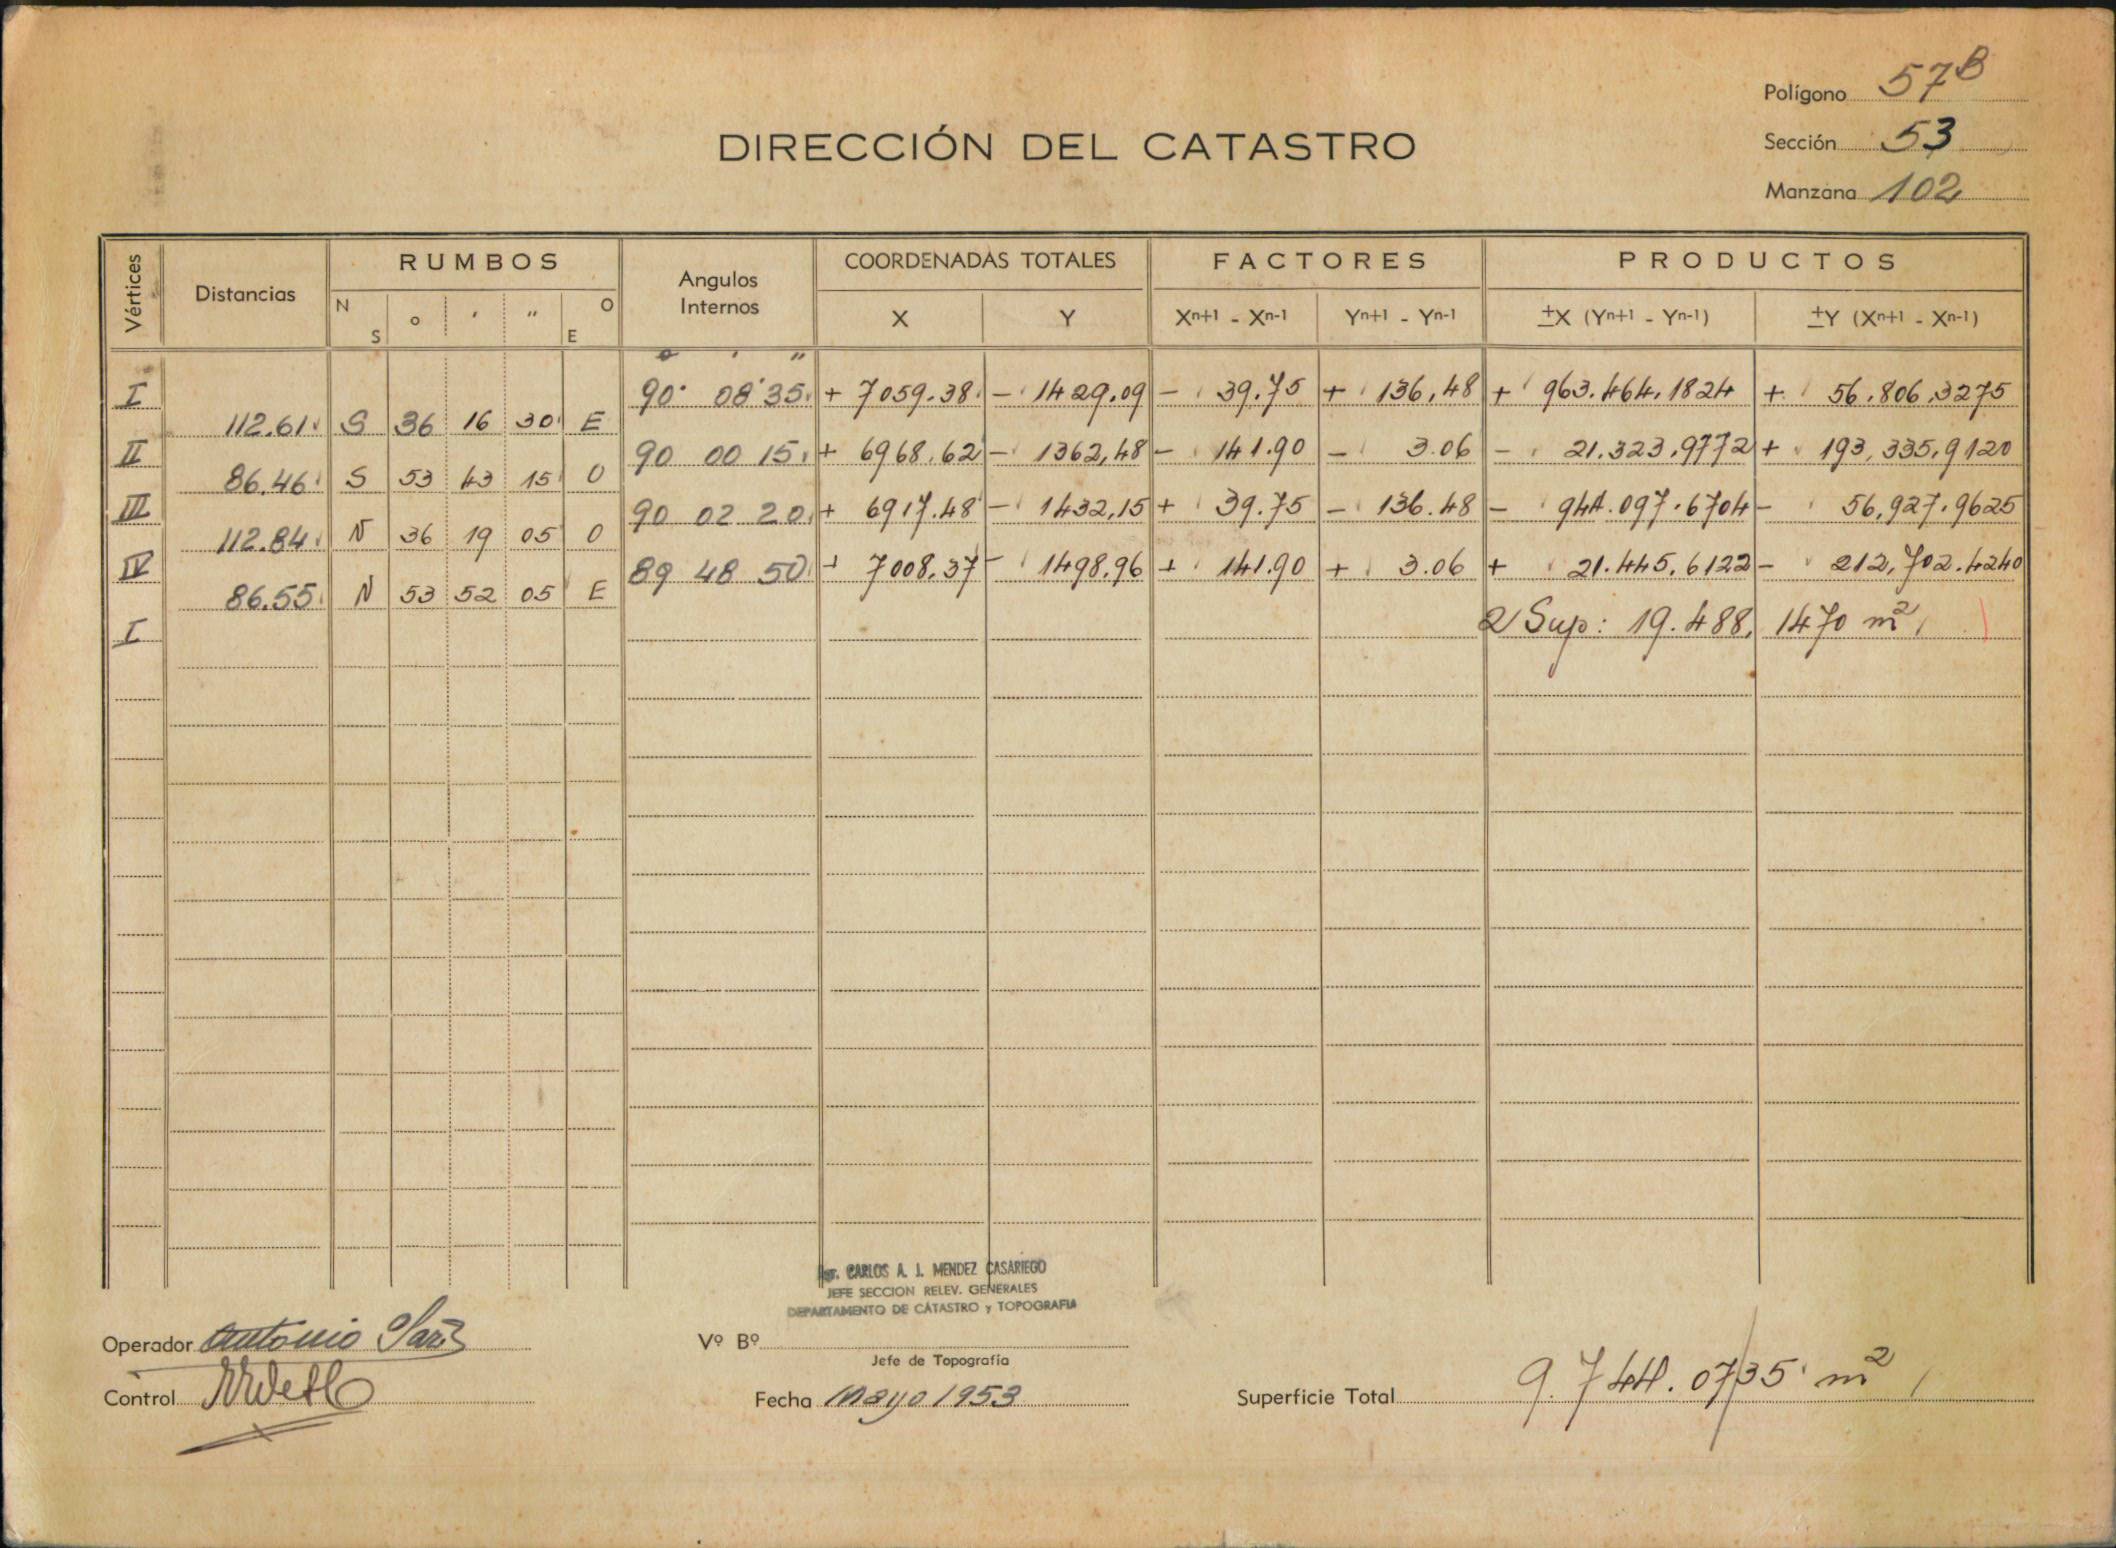 Polígono 57B
DIRECCIÓN DEL CATASTRO
Sección 53
Manzana 102
Vértices Distancias RUMBOS Angulos Internos COORDENADAS TOTALES FACTORES PRODUCTOS
N S o ' " O E X Y Xn+1 - Xn-1 Yn+1 - Yn-1 ±X (Yn+1 - Yn-1) ±Y (Xn+1 - Xn-1)
o ' "
I 90° 08' 35 + 7059.38 - 1429.09 - 39.75 + 136,48 + 963.464,1824 + 56.806,3275
112.61 S 36 16 30 E
II 90 00 15 + 6968.62 - 1362,48 - 141.90 - 3.06 - 21.323,9772 + 193,335,9120
86.46 S 53 43 15 O
III 90 02 20 + 6917.48 - 1432,15 + 39.75 - 136.48 - 944.097.6704 - 56,927.9625
112.84 N 36 19 05 O
IV 89 48 50 + 7008,37 - 1498,96 + 141.90 + 3.06 + 21.445,6122 - 212,702.4240
86.55 N 53 52 05 E
I 2 Sup: 19.488,1470 m²
CARLOS A. J. MENDEZ CASARIEGO
JEFE SECCION RELEV. GENERALES
DEPARTAMENTO DE CATASTRO y TOPOGRAFIA
Operador Antonio
Vº Bº
Jefe de Topografía
Control
Fecha Mayo 1953
Superficie Total 9.744.0735 m²